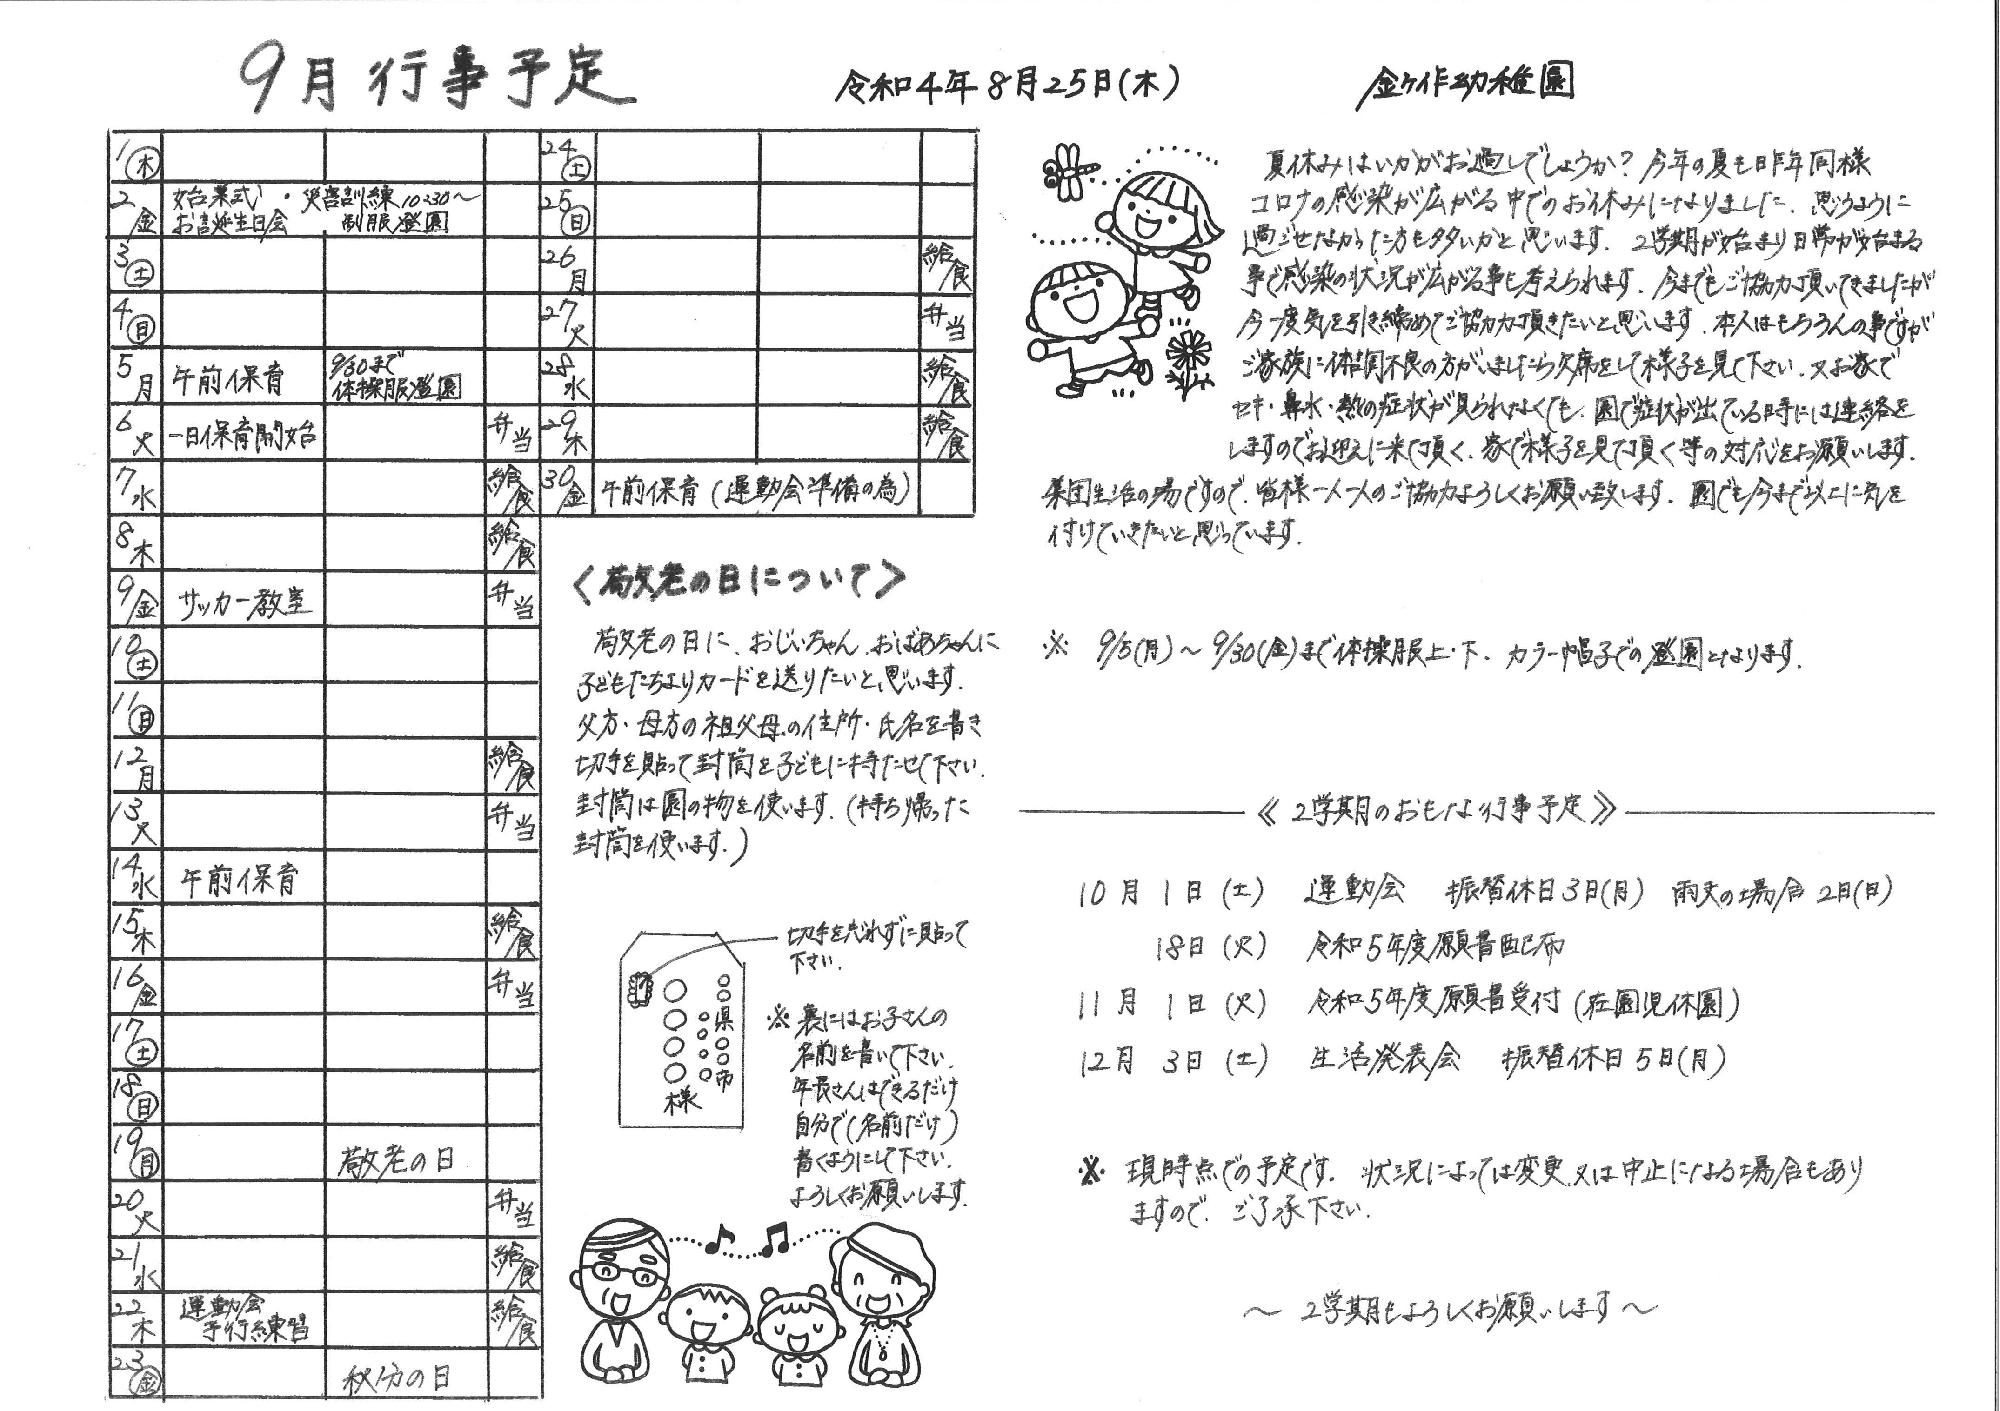 9月行事予定
令和4年8月25日(木)
金ヶ作幼稚園
1 木
2 金 始業式・災害訓練 10:30〜
お誕生日会 制服登園
3 土
4 日
5 月 午前保育 9/30まで
体操服登園
6 火 一日保育開始 弁当
7 水 給食
8 木 給食
9 金 サッカー教室 弁当
10 土
11 日
12 月 給食
13 火 弁当
14 水 午前保育
15 木 給食
16 金 弁当
17 土
18 日
19 月 敬老の日
20 火 弁当
21 水 給食
22 木 運動会
予行練習 給食
23 金 秋分の日
24 土
25 日
26 月 給食
27 火 弁当
28 水 給食
29 木 給食
30 金 午前保育(運動会準備の為)
<敬老の日について>
敬老の日に、おじいちゃん、おばあちゃんに
子どもたちよりカードを送りたいと思います.
父方・母方の祖父母の住所・氏名を書き
切手を貼って封筒を子どもに持たせて下さい.
封筒は園の物を使います.(持ち帰った
封筒を使います.)
切手を忘れずに貼って
下さい.
○○県○○市○○○○
○○○○様
※裏にはお子さんの
名前を書いて下さい.
年長さんはできるだけ
自分で(名前だけ)
書くようにして下さい.
よろしくお願いします.
夏休みはいかがお過しでしょうか?今年の夏も昨年同様
コロナの感染が広がる中でのお休みになりました.思うように
過ごせなかった方も多いかと思います.2学期が始まり日常が始まる
事で感染の状況が広がる事も考えられます.今までもご協力頂いてきましたが
今一度気を引き締めてご協力頂きたいと思います.本人はもちろんの事ですが
ご家族に体調不良の方がいましたら欠席をして様子を見て下さい.又お家で
セキ・鼻水・熱の症状が見られなくても、園で症状が出ている時には連絡を
しますのでお迎えに来て頂く、家で様子を見て頂く等の対応をお願いします.
集団生活の場ですので、皆様一人一人のご協力よろしくお願い致します.園でも今まで以上に気を
付けていきたいと思っています.
※ 9/5(月)〜9/30(金)まで体操服上・下、カラー帽子での登園となります.
《2学期のおもな行事予定》
10月 1日(土) 運動会 振替休日3日(月) 雨天の場合2日(日)
18日(火) 令和5年度願書配布
11月 1日(火) 令和5年度願書受付(在園児休園)
12月 3日(土) 生活発表会 振替休日5日(月)
※ 現時点での予定です.状況によっては変更又は中止になる場合もあり
ますので、ご了承下さい.
〜2学期もよろしくお願いします〜